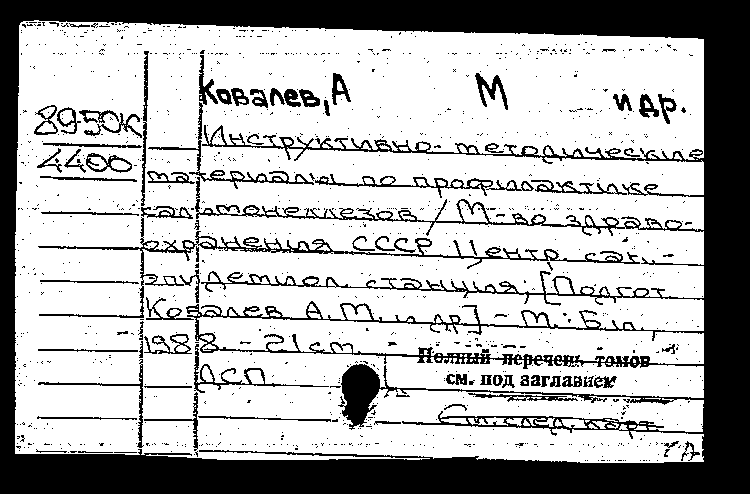 Ковалев, А М и др.
8950К Инструктивно-методические
4400 материалы по профилактике
сальмонеллезов / М-во здраво-
охранения СССР Центр. сан.-
эпидемиол. станция; [Подгот.
Ковалев А. М. и др] - М.: Б.и.,
1988. - 21 см.
Полный перечень томов
ДСП. см. под заглавием
См. след. карт